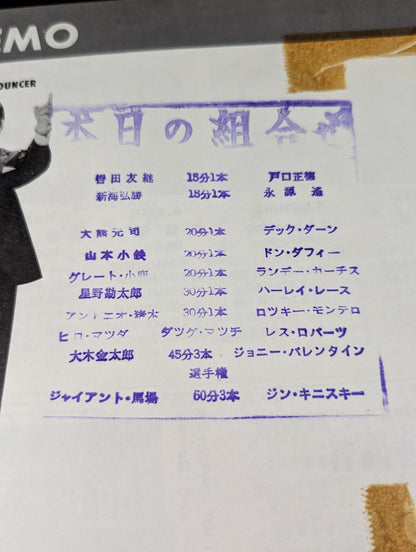 EMO
OUNCER
本日の組合せ
曽田友継 15分1本 戸口正徳
新海弘勝 15分1本 永源遙
大熊元司 20分1本 デック・ダーン
山本小鉄 20分1本 ドン・ダフィー
グレート・小鹿 20分1本 ランデー・カーチス
星野勘太郎 30分1本 ハーレイ・レース
アントニオ・猪木 30分1本 ロツキー・モンテロ
ヒロ・マツダ ダツグ・マツチ レス・ロバーツ
大木金太郎 45分3本 ジョニー・バレンタイン
選手権
ジャイアント・馬場 60分3本 ジン・キニスキー